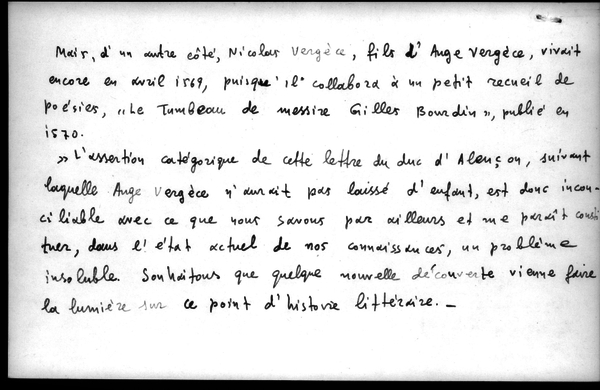 Mais, d'un autre côté, Nicolas Vergèce, fils d'Ange Vergèce, vivait
encore en avril 1569, puisqu'il collabora à un petit recueil de
poésies, "Le Tumbeau de messire Gilles Bourdin", publié en
1570.
» L'assertion catégorique de cette lettre du duc d'Alençon, suivant
laquelle Ange Vergèce n'aurait pas laissé d'enfant, est donc incon-
ciliable avec ce que nous savons par ailleurs et me paraît consti
tuer, dans l'état actuel de nos connaissances, un problème
insoluble. Souhaitons que quelque nouvelle découverte vienne faire
la lumière sur ce point d'histoire littéraire. _